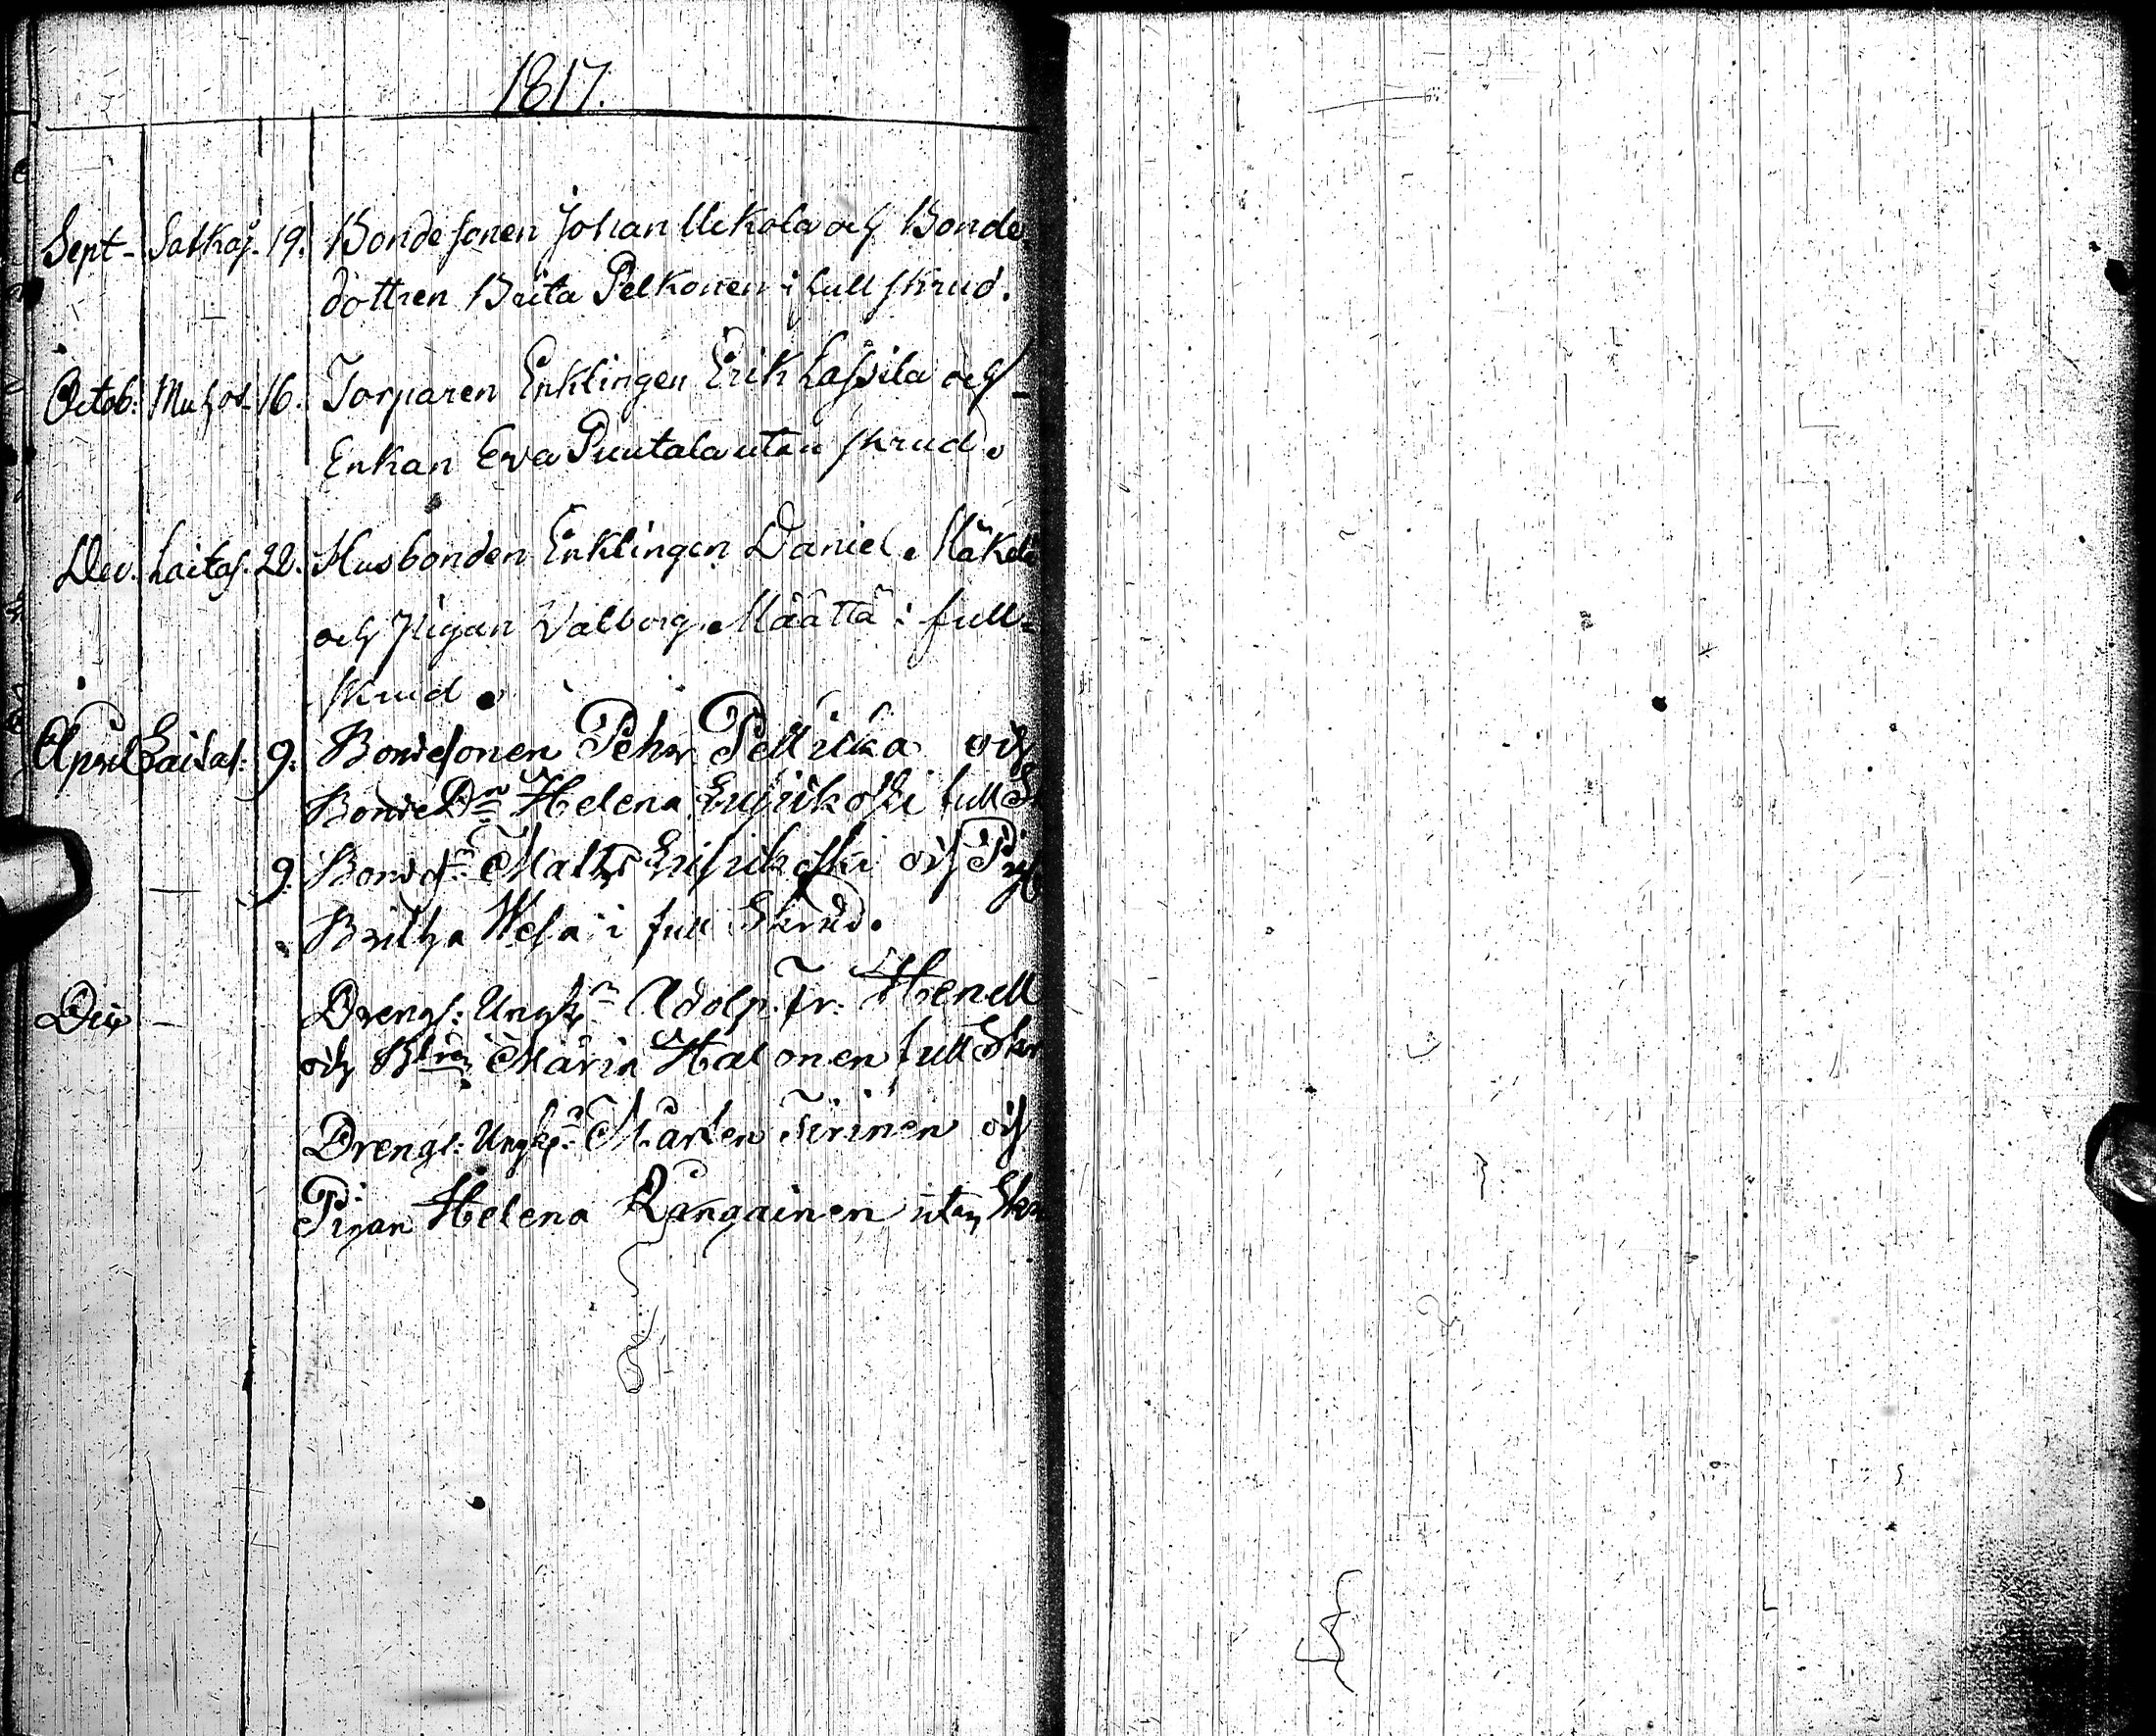 1817.
Sept- Satkaj. 19. Bondesonen Johan Mikola och Bonde
dottren Brita Pelkonen i full skrud.
Octob: Muhos. 16. Torparen Enklingen Erik Lassila och
Enkan Eva Puutala utan skrud.
Dec. Laitas. 22. Husbonden Enklingen Daniel Mäkelä
och Pigan Valborg Määttä i full
skrud.
April Laitas: 9. Bondesonen Pehr Pellicka och
Bonde Dn Helena full
9. Matts och
Britha Wesa i full Skrud.
Drengs: Ungk:n Adolp. Fr. Henell
och Maria Halonen full Skr
Drengs: Ungk:n Mårten och
Pigan Helena Kangainen utan Skr